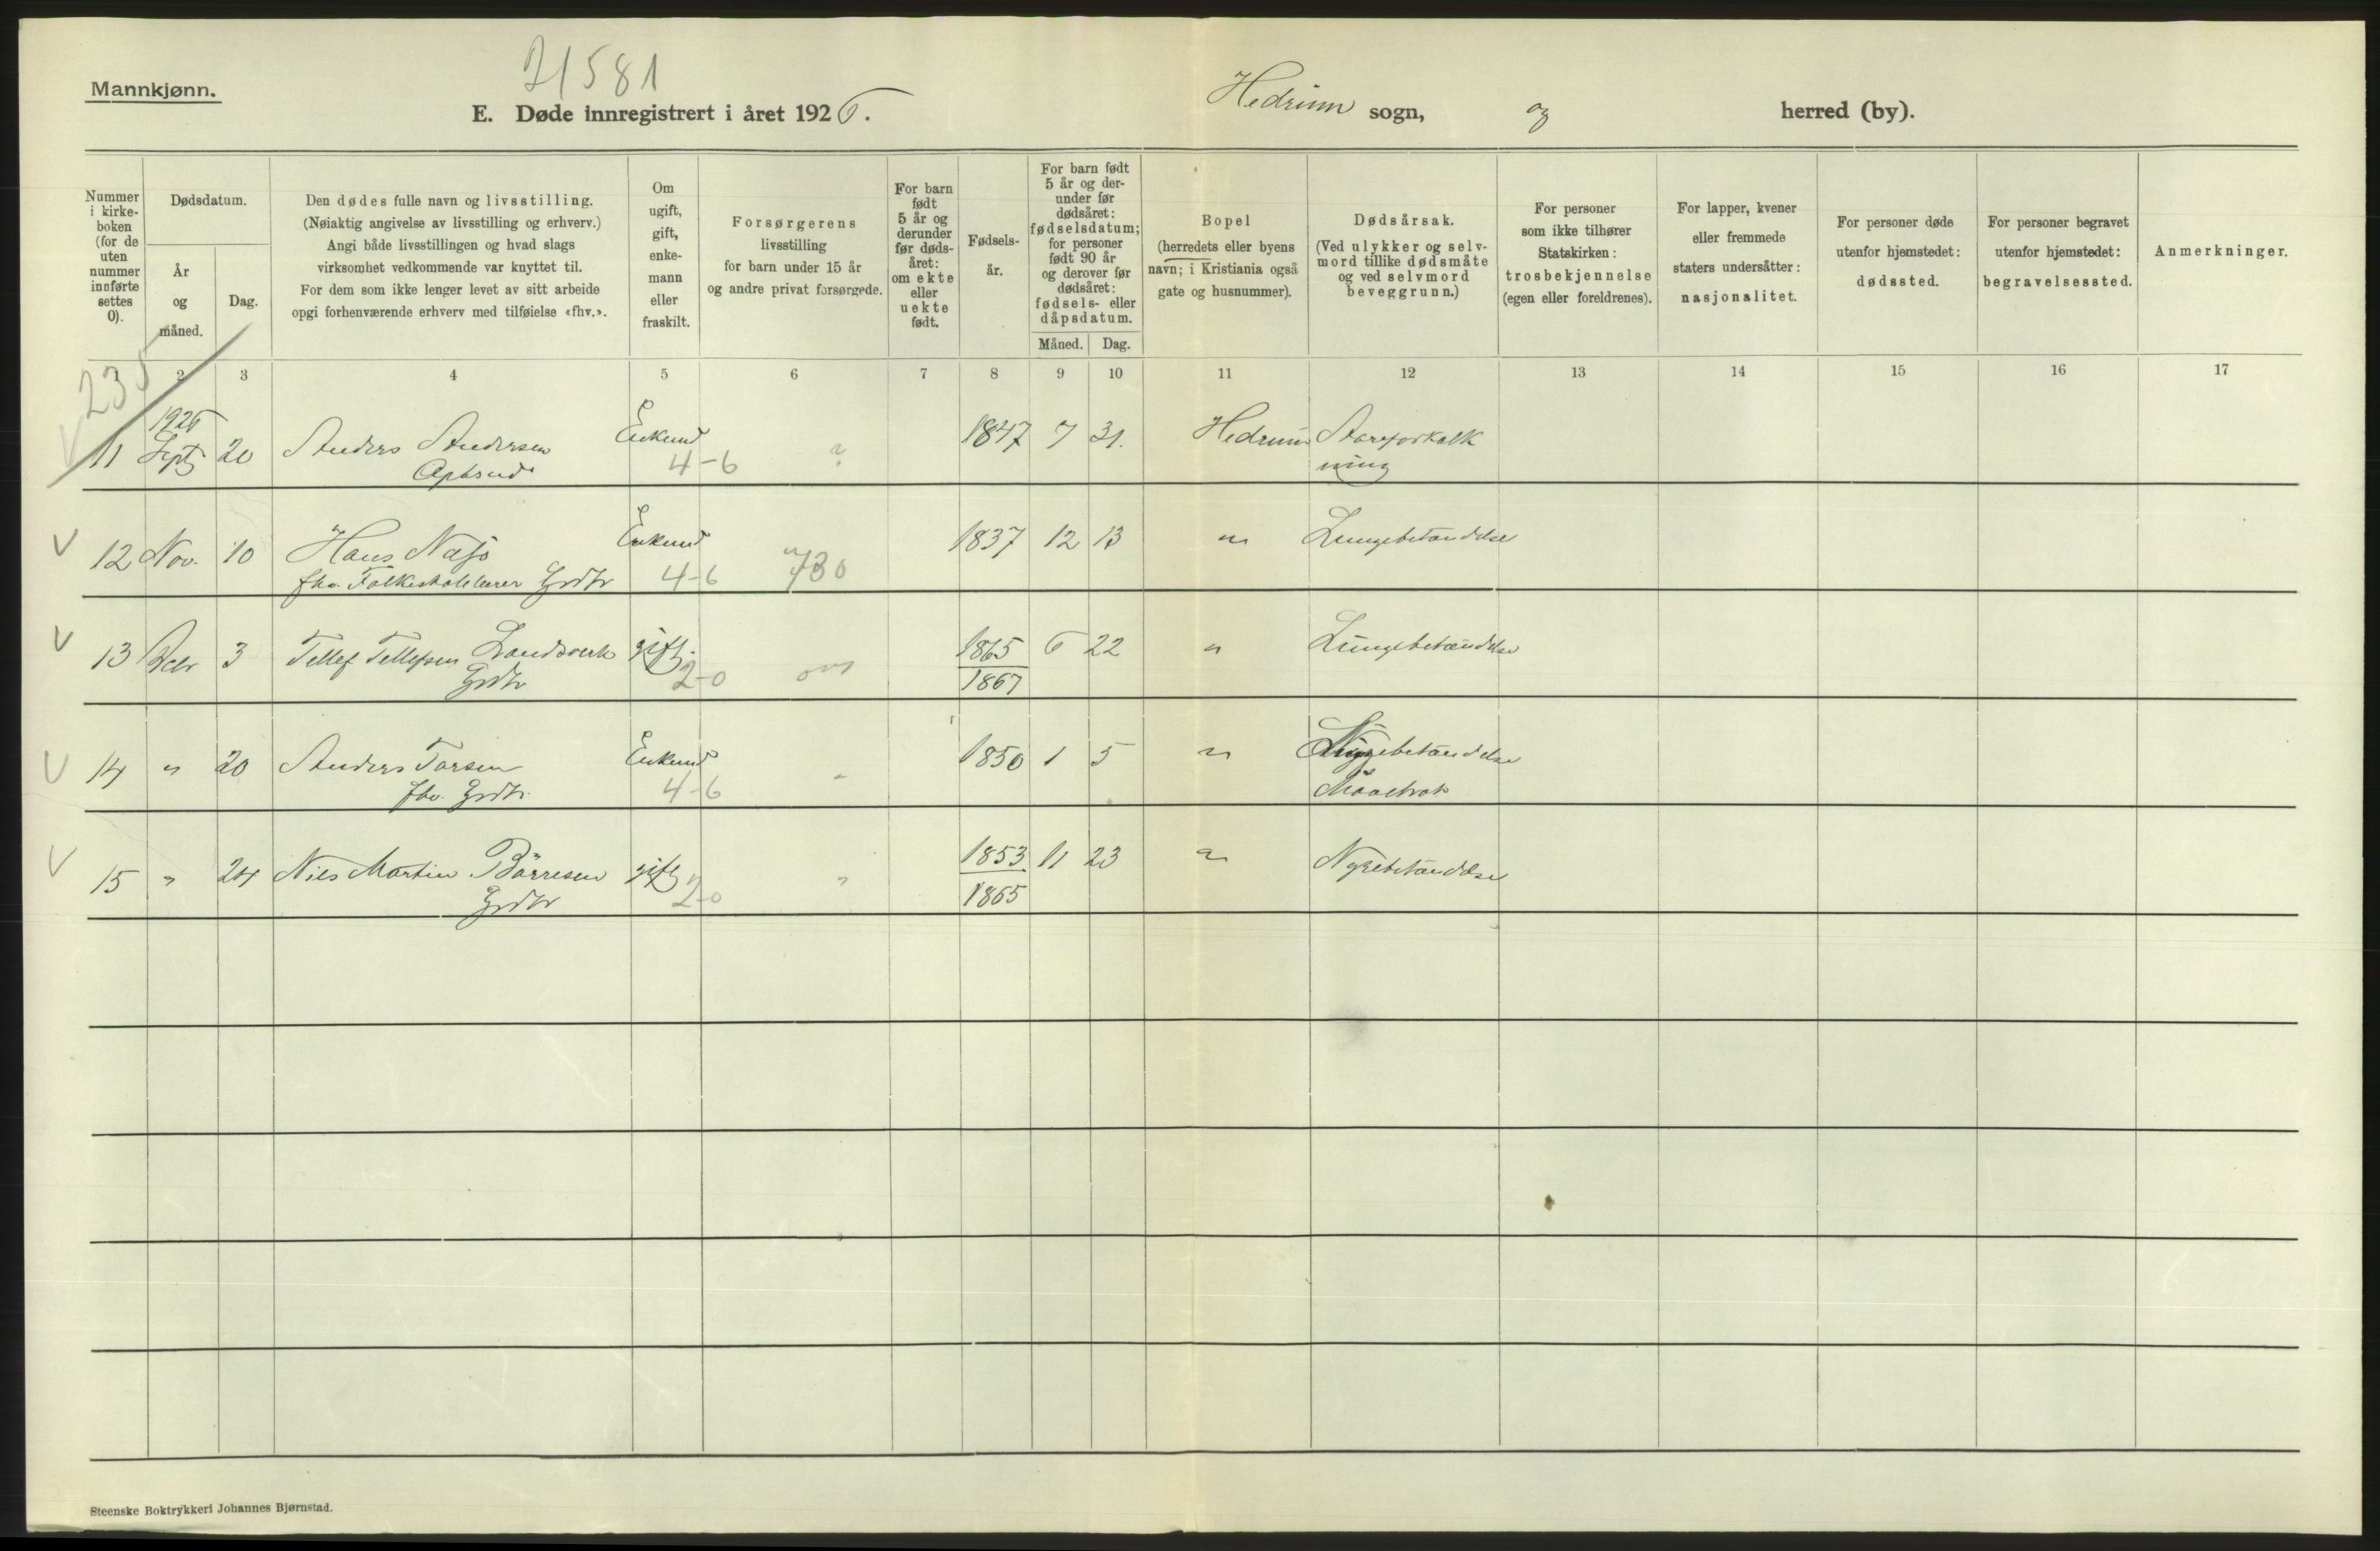 21581
Mannkjønn.
E. Døde innregistrert i året 1926.
Hedrum sogn, og herred (by).
Nummer i kirke-boken (for de uten nummer innførte settes 0).
Dødsdatum.
År og måned.
Dag.
Den dødes fulle navn og livsstilling.
(Nøiaktig angivelse av livsstilling og erhverv.)
Angi både livsstillingen og hvad slags
virksomhet vedkommende var knyttet til.
For dem som ikke lenger levet av sitt arbeide
opgi forhenværende erhverv med tilføielse «fhv.».
Om
ugift,
gift,
enke-
mann
eller
fraskilt.
Forsørgerens
livsstilling
for barn under 15 år
og andre privat forsørgede.
For barn
født
5 år og
derunder
før døds-
året:
om ekte
eller
uekte
født.
Fødsels-
år.
For barn født
5 år og der-
under før
dødsåret:
fødselsdatum;
for personer
født 90 år
og derover før
dødsåret:
fødsels- eller
dåpsdatum.
Måned. Dag.
Bopel
(herredets eller byens
navn; i Kristiania også
gate og husnummer).
Dødsårsak.
(Ved ulykker og selv-
mord tillike dødsmåte
og ved selvmord
beveggrunn.)
For personer
som ikke tilhører
Statskirken:
trosbekjennelse
(egen eller foreldrenes).
For lapper, kvener
eller fremmede
staters undersåtter:
nasjonalitet.
For personer døde
utenfor hjemstedet:
dødssted.
For personer begravet
utenfor hjemstedet:
begravelsessted.
Anmerkninger.
1 2 3 4 5 6 7 8 9 10 11 12 13 14 15 16 17
235
1926
11 Sept 20 Anders Andersen Enkem 1847 7 31. Hedrum Aareforkalk
4-6 ? ning
V 12 Nov. 10 Hans Næsjø Enkem " 1837 12 13 " Lungebetændelse
fhv. Folkeskolelærer Grdbr 4-6 730
V 13 Decbr 3 Tellef Tellefsen Landsverk gift. 1865 6 22 " Lungebetændelse
Grdbr 2-0 1867
V 14 " 20 Anders Torsen Enkem 1850 1 5 "
fhv. Grdbr. 4-6 -
V 15 " 24 Niels Martin Børresen gift 1853 11 23 " Nyrebetændelse
Grdbr 2-0 " 1865
Steenske Boktrykkeri Johannes Bjørnstad.